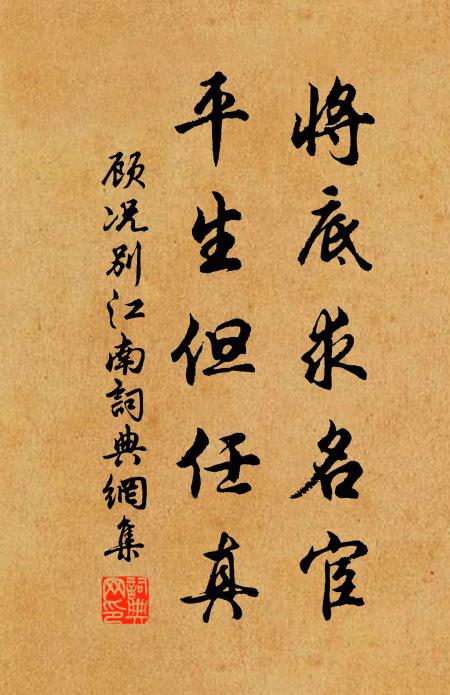 将底求名宦
平生但任真
顾况别江南詞典網集
詞典
网印